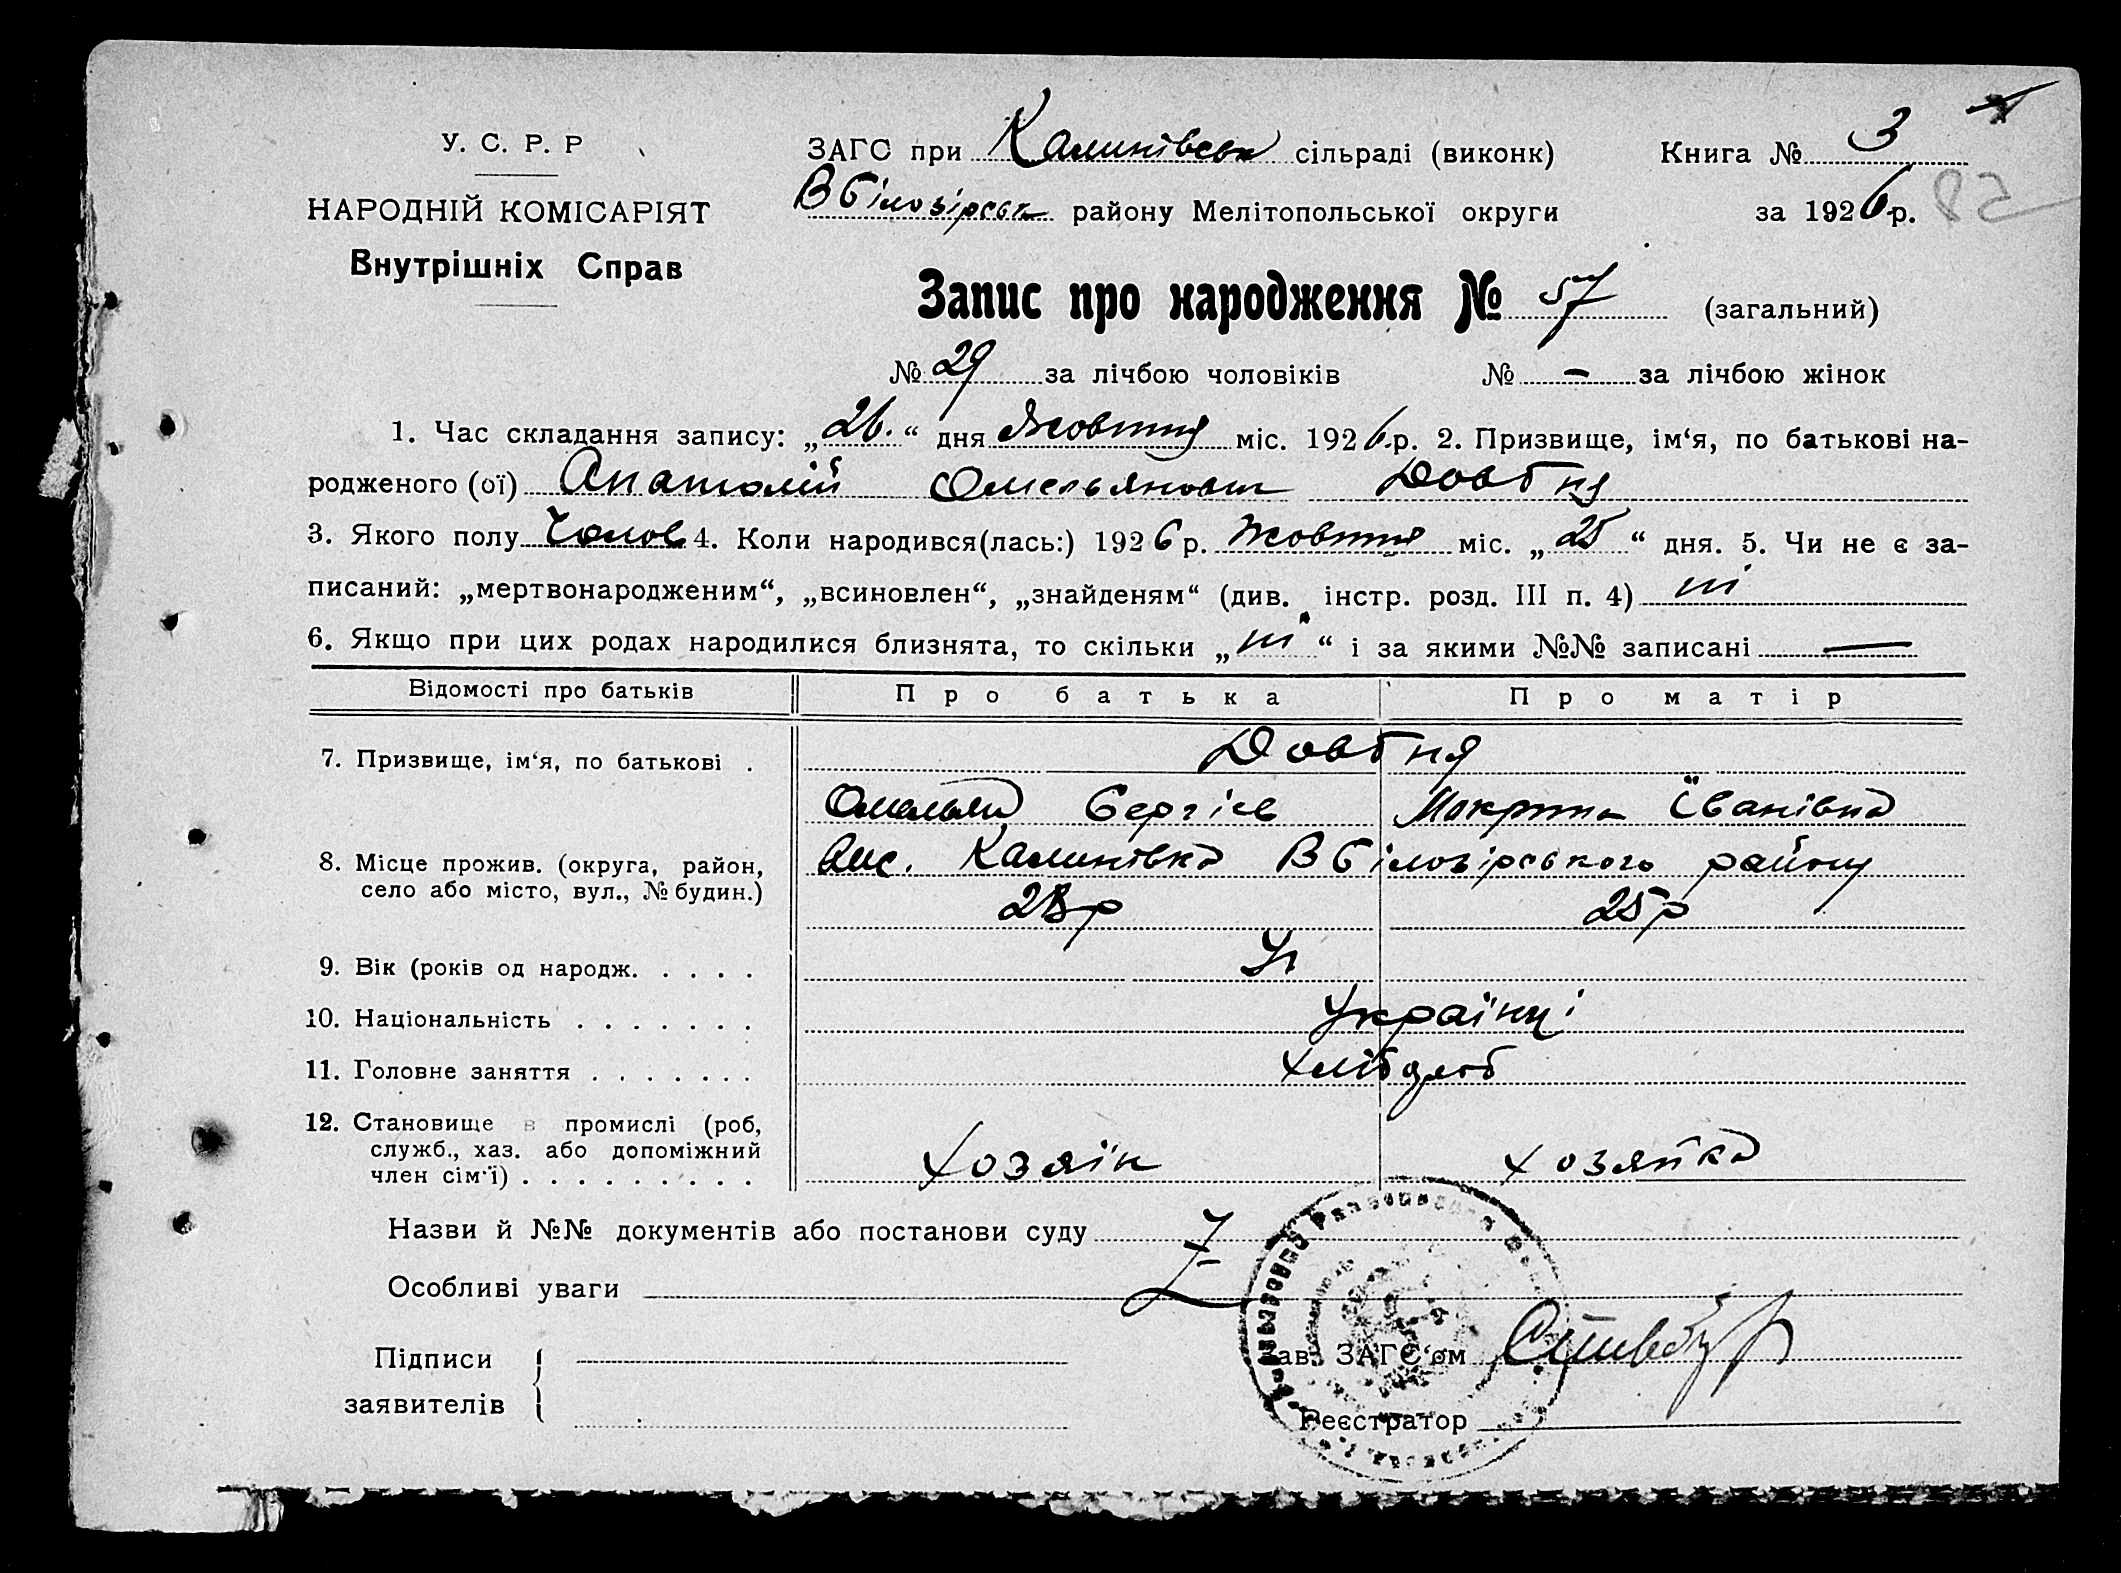 У. С. Р. Р
НАРОДНІЙ КОМІСАРІЯТ
Внутрішніх Справ
ЗАГС при Калинівськ сільраді (виконк) Книга № 3
В Білозірськ району Мелітопольської округи за 1926 р. 85
Запис про народження № 57 (загальний)
№ 29 за лічбою чоловіків № — за лічбою жінок
1. Час складання запису: „26.“ дня Жовтня міс. 1926 р. 2. Призвище, ім‘я, по батькові на-
родженого (ої) Анатолій Омельянович Довбня
3. Якого полу Чолов 4. Коли народився(лась:) 1926 р. Жовтня міс. „25“ дня. 5. Чи не є за-
писаний: „мертвонародженим“, „всиновлен“, „знайденям“ (див. інстр. розд. III п. 4) ні
6. Якщо при цих родах народилися близнята, то скільки „ні“ і за якими №№ записані —
Відомості про батьків Про батька Про матір
7. Призвище, ім‘я, по батькові . Довбня
Омельян Сергієв Мокрина Іванівна
8. Місце прожив. (округа, район, село або місто, вул., № будин.) Вис. Калинівка В Білозірського району
28р 25р
9. Вік (років од народж. . . . .
10. Національність . . . . . . . Українці
11. Головне заняття . . . . . . . Хлібороб
12. Становище в промислі (роб, служб., хаз. або допоміжний член сім‘ї) . . . . . . . . . Хозяїн Хозяйка
Назви й №№ документів або постанови суду
Особливі уваги
Підписи
заявителів
Зав. ЗАГС‘ом
Реєстратор